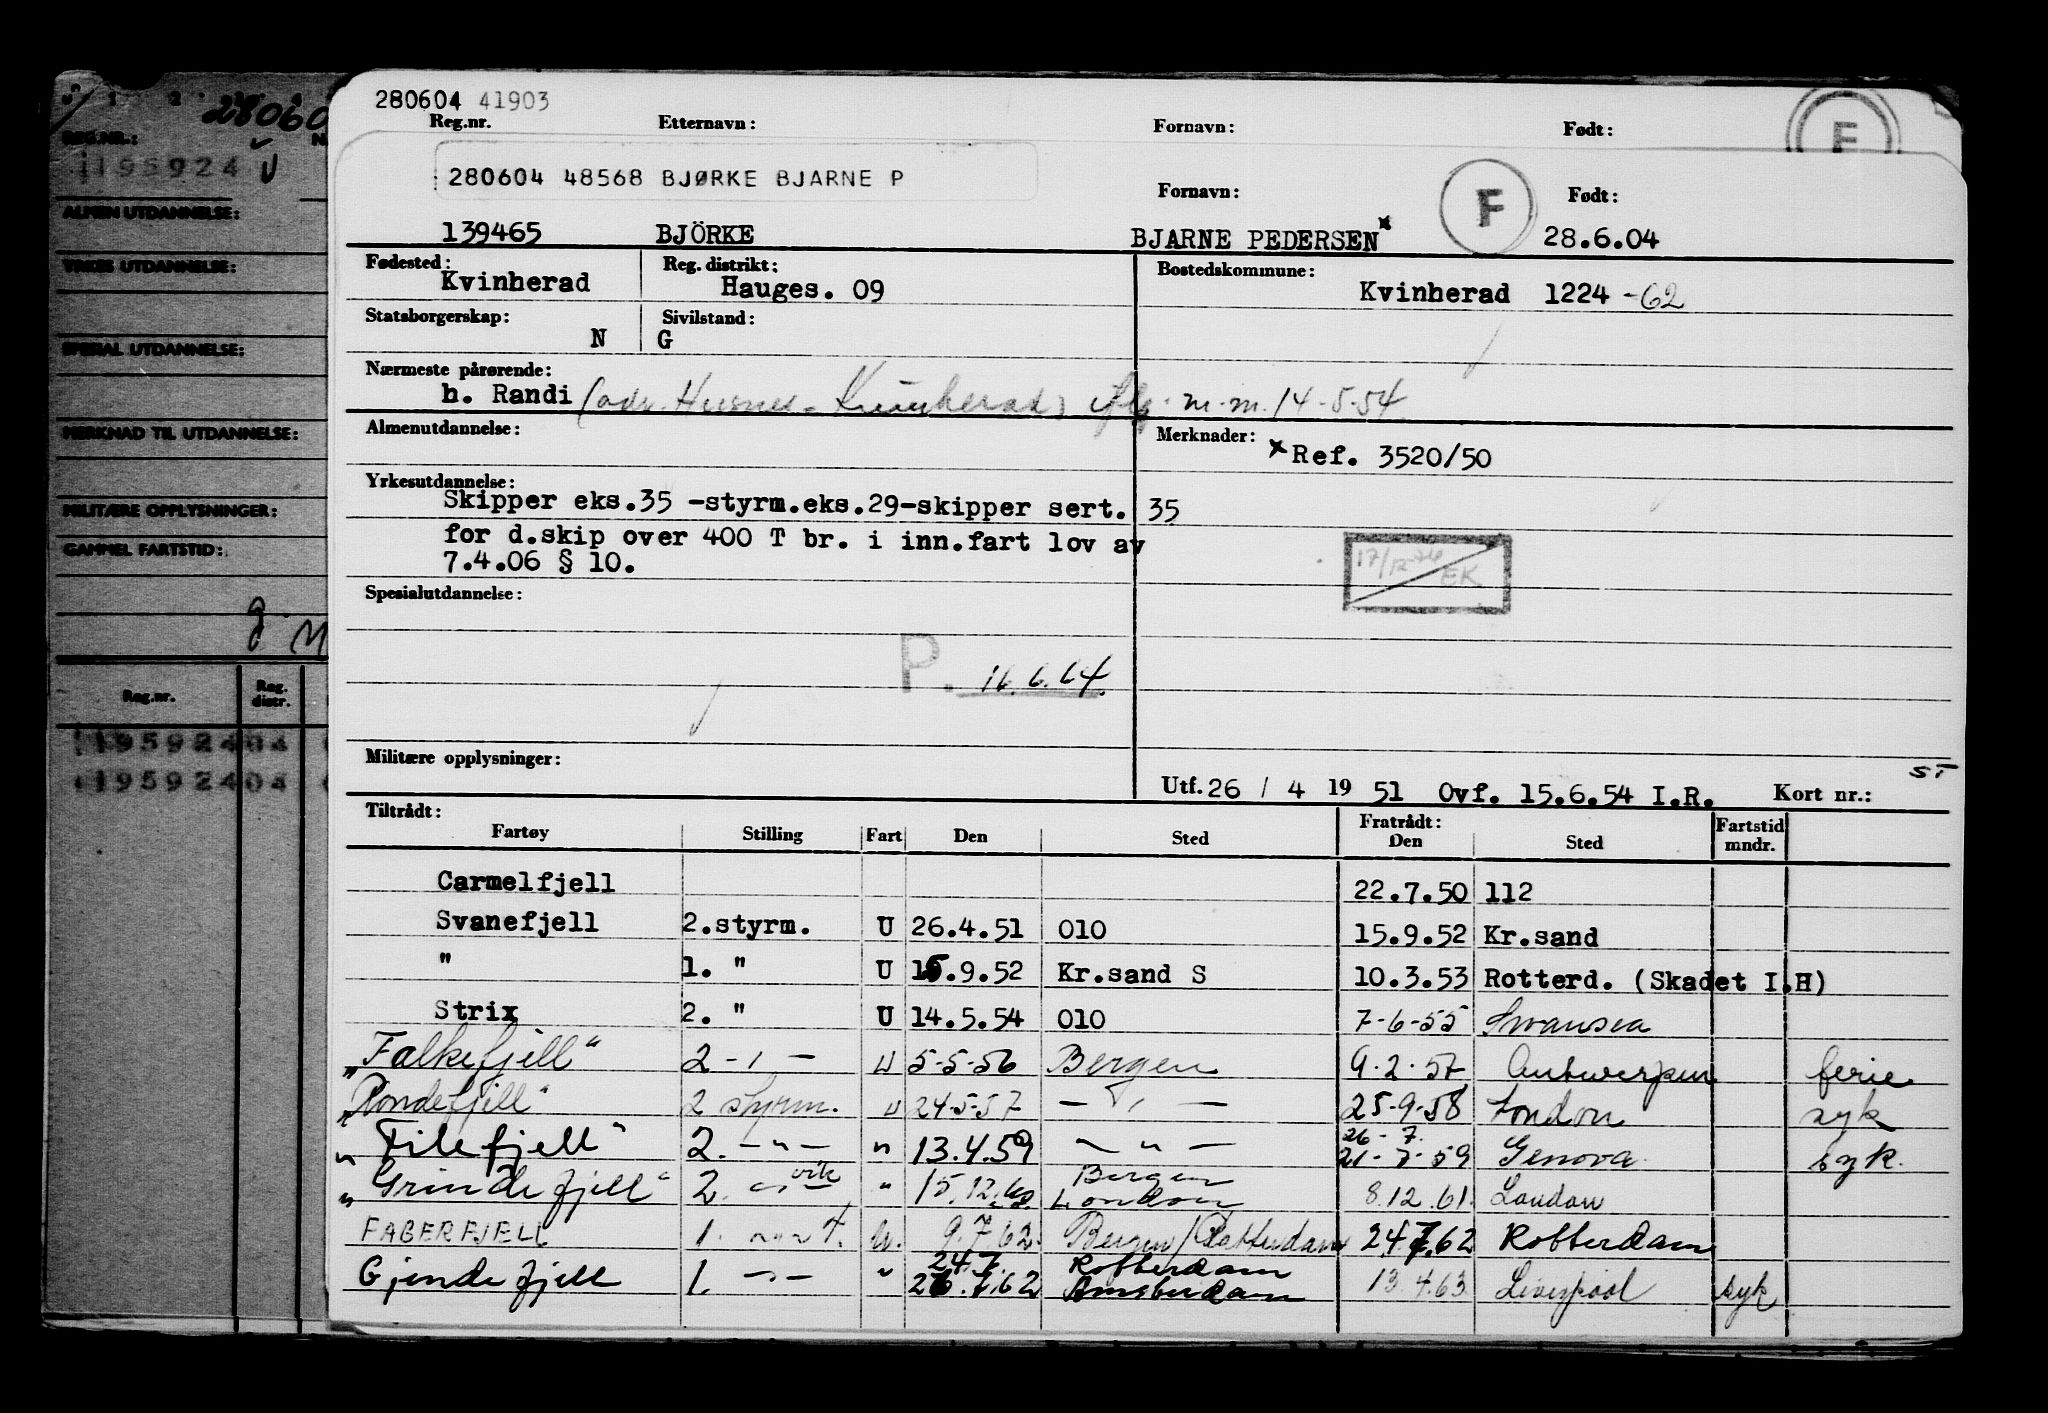 0 1 2 3 4
28060
REG.NR.:
195924 U
ALMEN UTDANNELSE:
YRKES UTDANNELSE:
SPESIAL UTDANNELSE:
MERKNAD TIL UTDANNELSE:
MILITÆRE OPPLYSNINGER:
GAMMEL FARTSTID:
g.
Reg.nr. Reg. distr.
19592404
19592404
280604 41903
Reg.nr. Etternavn: Fornavn: Født: F
280604 48568 BJØRKE BJARNE P
Fornavn: F Født:
139465 BJÖRKE BJARNE PEDERSEN x 28.6.04
Fødested: Kvinherad Reg. distrikt: Hauges. 09 Bostedskommune: Kvinherad 1224 -62
Statsborgerskap: N Sivilstand: G
Nærmeste pårørende:
h. Randi (adr. Husnes - Kvinnherad) m.m. 14-5-54
Almenutdannelse: Merknader: x Ref. 3520/50
Yrkesutdannelse:
Skipper eks.35 -styrm.eks.29-skipper sert. 35
for d.skip over 400 T br. i inn.fart lov av
7.4.06 § 10.
17/12-74 EK
Spesialutdannelse:
P. 16.6.64.
Militære opplysninger:
Utf. 26 / 4 19 51 Ovf. 15.6.54 I.R. Kort nr.: ST
Tiltrådt: Fratrådt:
Fartøy Stilling Fart Den Sted Den Sted Fartstid mndr.
Carmelfjell 22.7.50 112
Svanefjell 2.styrm. U 26.4.51 010 15.9.52 Kr.sand
" 1. " U 15.9.52 Kr.sand S 10.3.53 Rotterd. (Skadet I.H)
Strix 2. " U 14.5.54 010 7-6-55 Swansea
"Falkefjell" 2 - " - U 5-5-56 Bergen 9.2.57 Antwerpen ferie
"Rondefjell" 2 Styrm. U 24-5-57 - " - 25-9-58 London syk
"Filefjell" 2. - " - " 13.4.59 - " - 26-7. 21-7-59 Genova syk.
"Grindefjell" 2. - " - vik " 15.12.60. Bergen London 8.12.61. London
FAGERFJELL 1. - " - U. 9.7.62. Bergen/Rotterdam 24.7.62 Rotterdam
Gjendefjell 1. - " - " 24.7. 26.7.62 Rotterdam Amsterdam 13.4.63. Liverpool syk